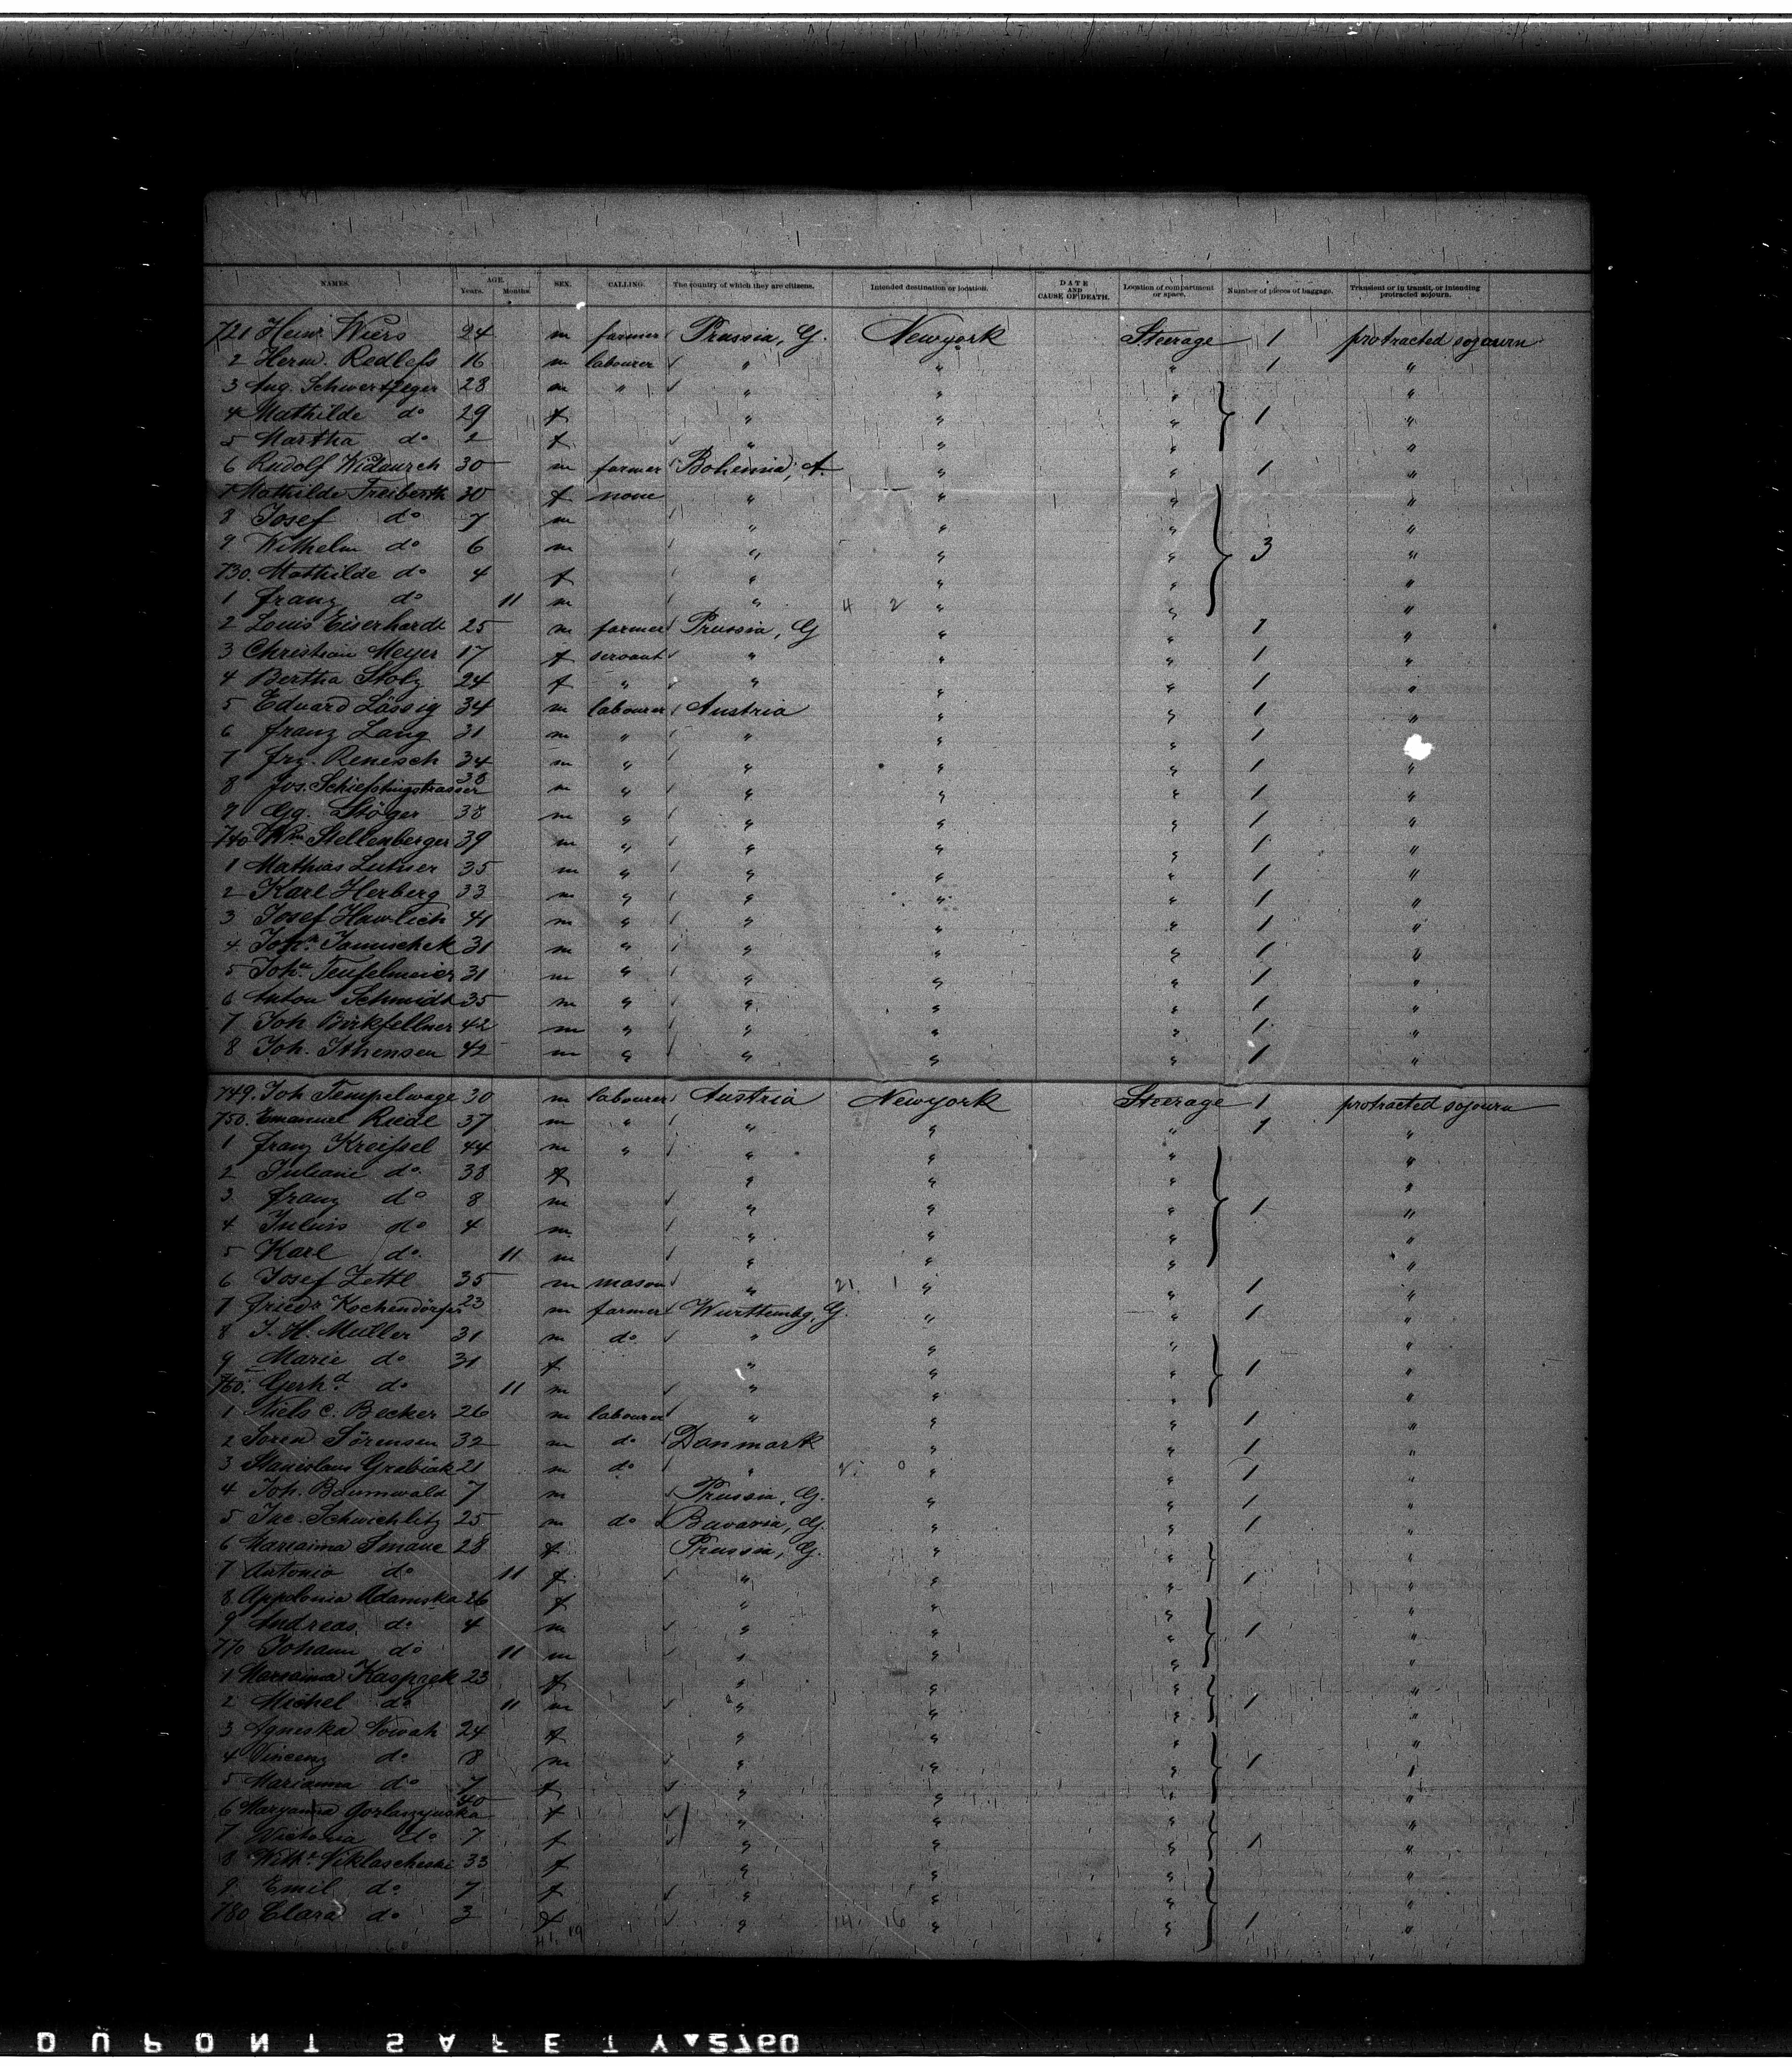 NAMES. AGE. Years. Months. SEX. CALLING. The country of which they are citizens. Intended destination or location. DATE AND CAUSE OF DEATH. Location of compartment or space. Number of pieces of baggage. Transient or in transit, or intending protracted sojourn.
721 Heinr. Wiers 24 m farmer Prussia, G. Newyork Steerage 1 protracted sojourn
2 Herm. Redlefs 16 m labourer " " " 1 "
3 Aug. Schwertfeger 28 m " " " " "
4 Mathilde do 29 f " " " 1 "
5 Martha do 2 f " " " "
6 Rudolf 30 m farmer Bohemia, A. " " 1 "
7 Mathilde Freiberth 30 f none " " " "
8 Josef do 7 m " " " "
9 Wilhelm do 6 m " " " 3 "
730. Mathilde do 4 f " " " "
1 Franz do 11 m " 4 2 " " "
2 Louis Eiserhardt 25 m farmer Prussia, G " " 1 "
3 Christian Meyer 17 f servant " " " 1 "
4 Bertha Stolz 24 f " " " " 1 "
5 Eduard Lässig 34 m labourer Austria " " 1 "
6 Franz Lang 31 m " " " " 1
7 Frz. Renesch 34 m " " " " 1 "
8 Jos. Schieftingstrasser 38 m " " " " 1 "
9 Gg. Stöger 38 m " " " " 1 "
740 Wm Stellenberger 39 m " " " " 1 "
1 Mathias Lutner 35 m " " " " 1 "
2 Karl Herberg 33 m " " " " 1 "
3 Josef Hawlich 41 m " " " " 1 "
4 John Janischek 31 m " " " " 1 "
5 John Teufelmeier 31 m " " " " 1 "
6 Anton Schmidt 35 m " " " " 1 "
7 Joh Birkfellner 42 m " " " " 1 "
8 Joh. Ithensen 42 m " " " " 1 "
749. Joh Tempelwage 30 m labourer Austria Newyork Steerage 1 protracted sojourn
750. Emanuel Riedl 37 m " " " " 1 "
1 Franz Kreissel 44 m " " " " "
2 Juliane do. 38 f " " " "
3 Franz do 8 m " " " 1 "
4 Julius do 4 m " " " "
5 Karl do. 11 m " " " "
6 Josef Zettl 35 m mason " 21. 1 " 1 "
7 Friedr Kochendörfer 23 m farmer Wurttembg, G. " " 1 "
8 J. H. Muller 31 m do " " " "
9 Marie do 31 f " " " 1 "
760. Gerhd do 11 m " " " "
1 Niels C. Becker 26 m labourer " " " 1 "
2 Soren Sörensen 32 m do Danmark " " 1 "
3 Stanislaus Grabiak 21 m do " 0 " " 1 "
4 Joh. Baumwald 7 m Prussia, G. " " 1 "
5 Jac. Schwichlitz 25 m do Bavaria, G. " " 1 "
6 28 f Prussia, G. " " "
7 Antonia do 11 f " " " 1 "
8 Appolonia Adamska 26 f " " " "
9 Andreas do 4 m " " " 1 "
770 Johann do 11 m " " " "
1 Marianna Kasprzek 23 f " " " "
2 Michel do 11 m " " " 1 "
3 Agneska Nowak 24 f " " " "
4 Vincenz do 8 m " " " 1 "
5 Marianna do 7 f " " " "
6 Maryanna 40 f " " " "
7 Victoria do 7 f " " " 1 "
8 33 f " " " "
9 Emil do 7 f " " " "
780 Clara do 3 f " 14 16 " " 1 "
DUPONT SAFETY 2760